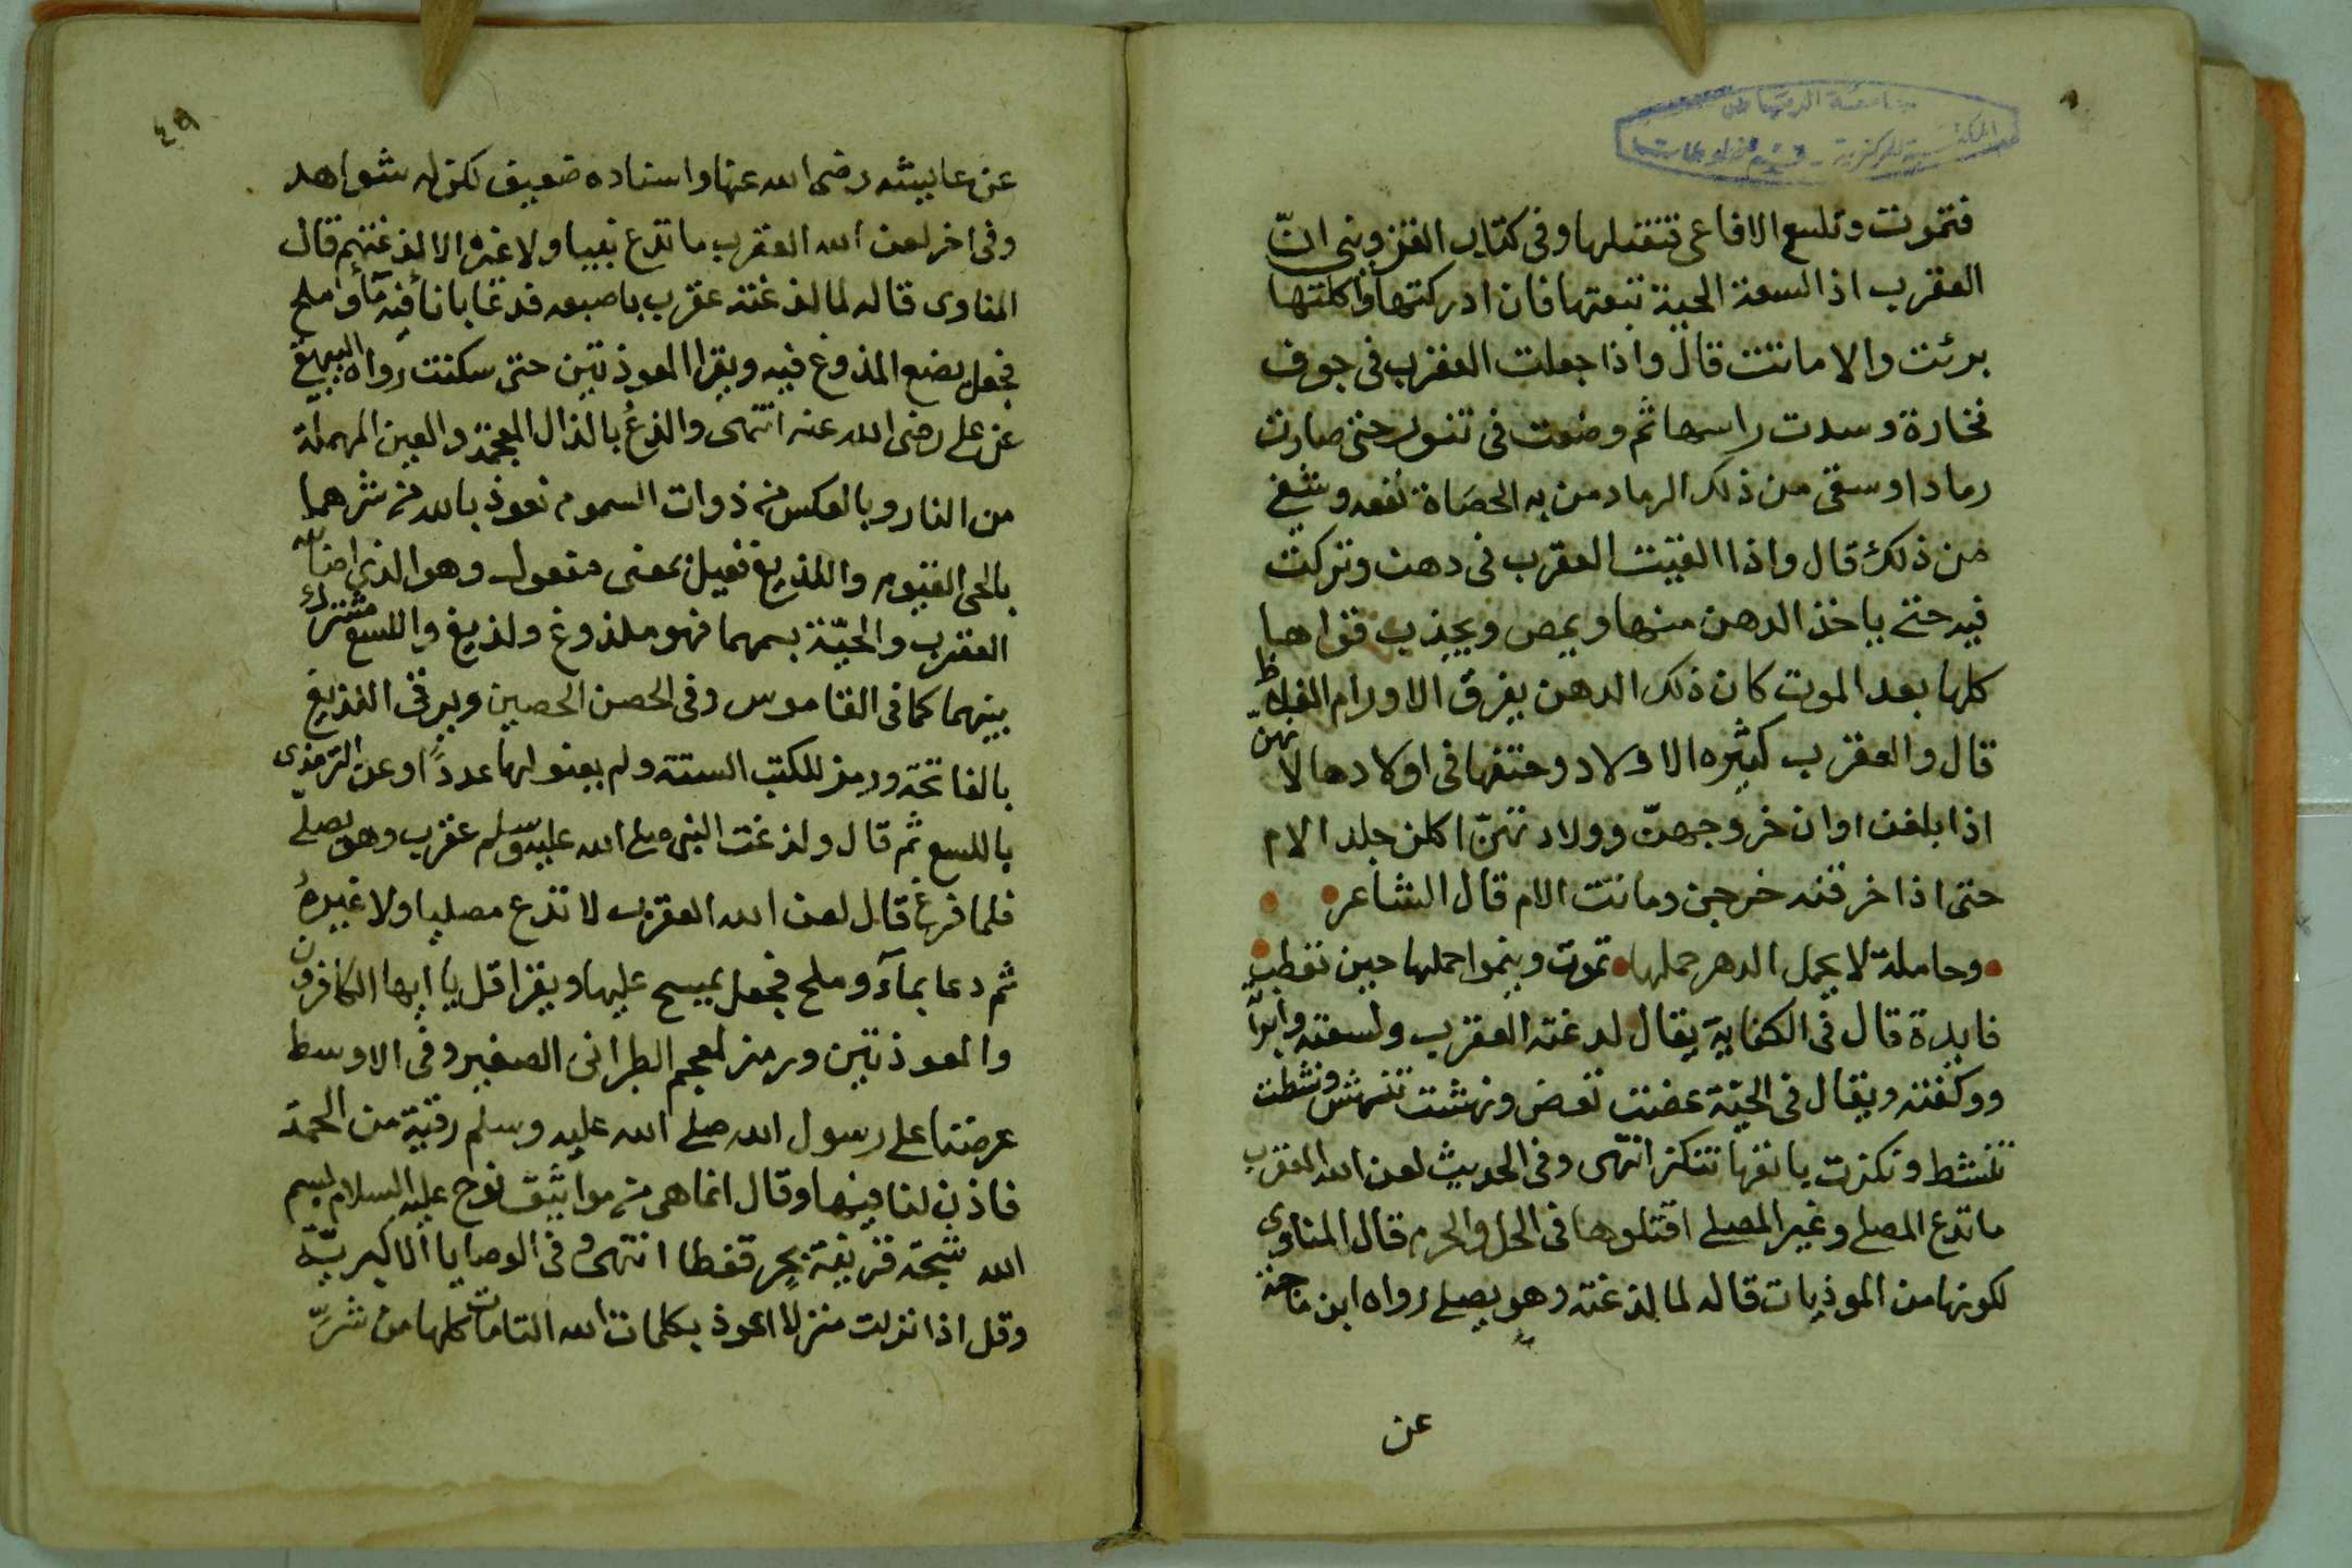 جامعة الرياض
المكتبة المركزية - قسم المخطوطات
فتموت وتلسع الافاعى فتقتلها وفى كتاب القزوينى انّ
العقرب اذا لسعة الحية تبعتها فان ادركتها واكلتها
برئت والا ماتت قال واذا جعلت العقرب فى جوف
فخارة وسدت راسها ثم وضعت فى تنور حتى صارت
رمادا وسقى من ذلك الرماد من به الحصاة نفعه وشفى
من ذلك قال واذا القيت العقرب فى دهن وتركت
فيه حتى ياخذ الدهن منها ويمص ويجذب قواها
كلها بعد الموت كان ذلك الدهن يفرق الاورام الغلاظ
قال والعقرب كثيره الاولاد وحتفها فى اولادها لانهنّ
اذا بلغن اوان خروجهنّ وولادتهنّ اكلن جلد الام
حتى اذا خرقنه خرجن وماتت الام قال الشاعر
وحاملة لا يحمل الدهر حملها تموت وينموا حملها حين تعطب
فايدة قال فى الكفاية يقال لدغته العقرب ولسعته وابرته
ووكفته ويقال فى الحيّة عضت تعض ونهشت تنهش ونشطت
تنشط ونكزت بانفها تنكز انتهى وفى الحديث لعن الله العقرب
ما تدع المصلى وغير المصلى اقتلوها فى الحل والحرم قال المناوى
لكونها من الموذيات قاله لما لذغته وهو يصلى رواه ابن ماجه
عن
٤٩
عن عايشه رضى الله عنها واسناده ضعيف لكن له شواهد
وفى اخر لعن الله العقرب ما تدع نبيا ولا غيره الا لذغتهم قال
المناوى قاله لما لذغته عقرب باصبعه فدعا بانا فيه مآء وملح
فجعل يضع الملذوغ فيه ويقرا المعوذتين حتى سكنت رواه البيهقى
عن على رضى الله عنه انتهى والذعُ بالذال المعجمة والعين المهملة
من النار وبالعكس من ذوات السموم نعوذ بالله من شرهما
بالحى القيوم واللذيغ فعيل بمعنى مفعول وهو الذى اصابته
العقرب والحيّة بسمهما فهو ملذوغ ولذيغ واللسع مشترك
بينهما كما فى القاموس وفى الحصن الحصين ويرقى اللذيغ
بالفاتحة ورمز للكتب الستة ولم يعنو لها عدداً وعن الترمذى
باللسع ثم قال ولذغت النبى صلى الله عليه وسلم عقرب وهو يصلى
فلما فرغ قال لعن الله العقرب لا تدع مصليا ولا غيرهُ
ثم دعا بمآء وملح فجعل يمسح عليها ويقرا قل يا ايها الكافرون
والمعوذتين ورمز لمعجم الطبرانى الصغير وفى الاوسط
عرضنا على رسول الله صلى الله عليه وسلم رقية من الحمة
فاذن لنا فيها وقال انما هى من مواثيق نوح عليه السلام بسم
الله شجة قرنية بحر قفطا انتهى وفى الوصايا الاكبريّة
وقل اذا نزلت منزلا اعوذ بكلمات الله التامات كلها من شرّ